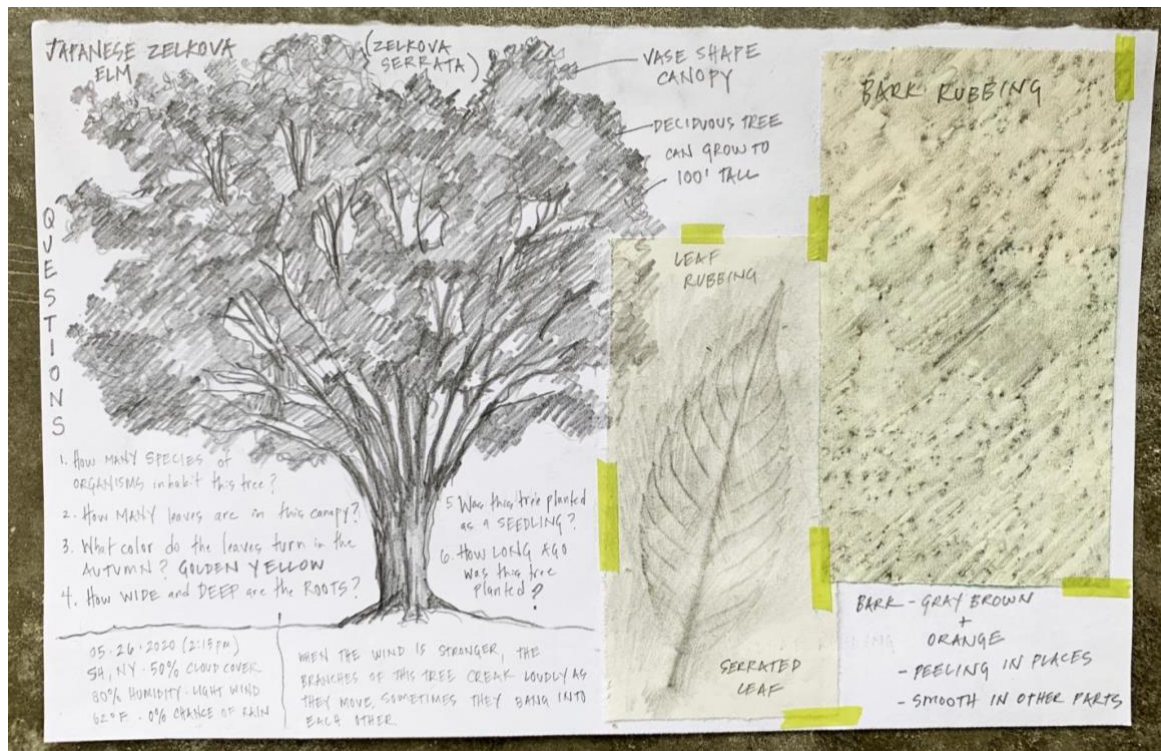 JAPANESE ZELKOVA
ELM
(ZELKOVA
SERRATA)
VASE SHAPE
CANOPY
DECIDUOUS TREE
CAN GROW TO
100' TALL
BARK RUBBING
LEAF
RUBBING
QUESTIONS
1. How MANY SPECIES of
ORGANISMS inhabit this tree?
2. How MANY leaves are in this canopy?
3. What color do the leaves turn in the
AUTUMN? GOLDEN YELLOW
4. How WIDE and DEEP are the ROOTS?
5. Was this tree planted
as a SEEDLING?
6. How LONG AGO
was this tree
planted?
05·26·2020 (2:15pm)
SH, NY · 50% CLOUD COVER
80% HUMIDITY · LIGHT WIND
62°F · 0% CHANCE OF RAIN
WHEN THE WIND IS STRONGER, THE
BRANCHES OF THIS TREE CREAK LOUDLY AS
THEY MOVE. SOMETIMES THEY BANG INTO
EACH OTHER
SERRATED
LEAF
BARK - GRAY BROWN
+
ORANGE
- PEELING IN PLACES
- SMOOTH IN OTHER PARTS